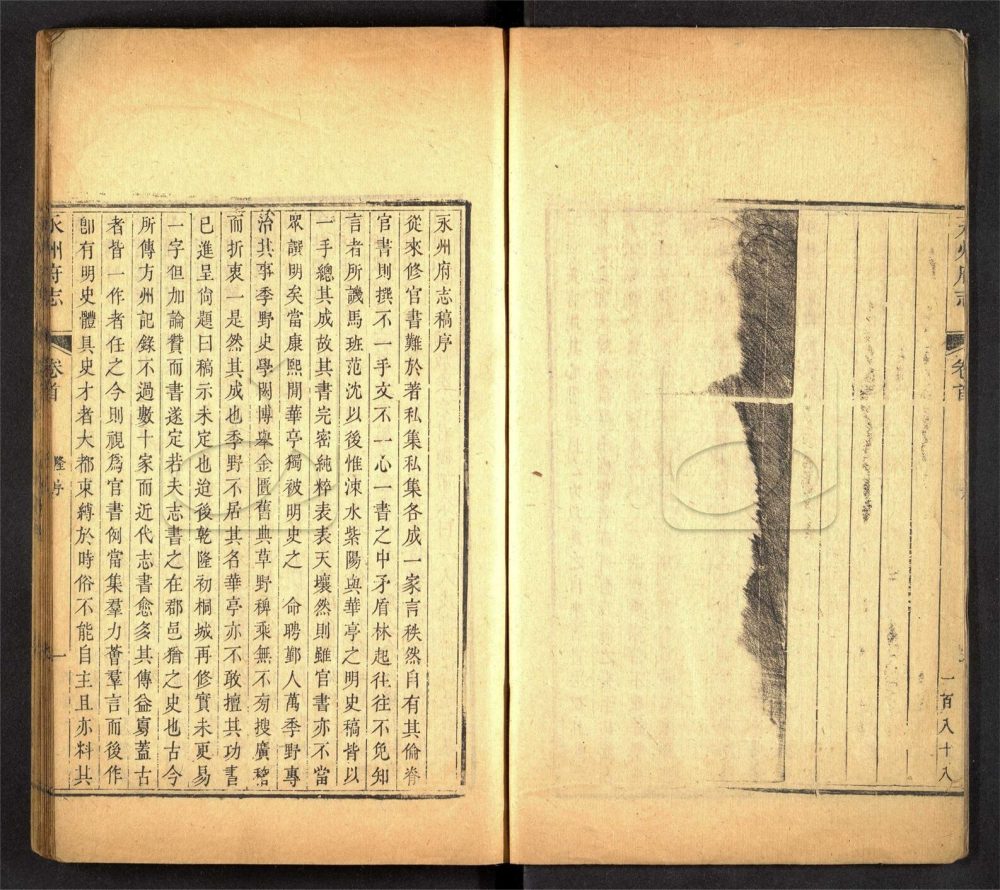 永州府志
卷首
一百八十八
永州府志稿序
從來修官書難於著私集私集各成一家言秩然自有其倫脊
官書則撰不一手文不一心一書之中矛盾林起往往不免知
言者所譏馬班范沈以後惟涑水紫陽與華亭之明史稿皆以
一手總其成故其書完密純粹表表天壤然則雖官書亦不當
眾譔明矣當康熙閒華亭獨被明史之 命聘鄞人萬季野專
治其事季野史學閎博舉金匱舊典草野稗乘無不旁搜廣稽
而折衷一是然其成也季野不居其名華亭亦不敢擅其功書
已進呈尙題曰稿示未定也迨後乾隆初桐城再修實未更易
一字但加論贊而書遂定若夫志書之在郡邑猶之史也古今
所傳方州記錄不過數十家而近代志書愈多其傳益寡蓋古
者皆一作者任之今則視爲官書例當集羣力薈羣言而後作
卽有明史體具史才者大都束縛於時俗不能自主且亦料其
永州府志
卷首
隆序
一